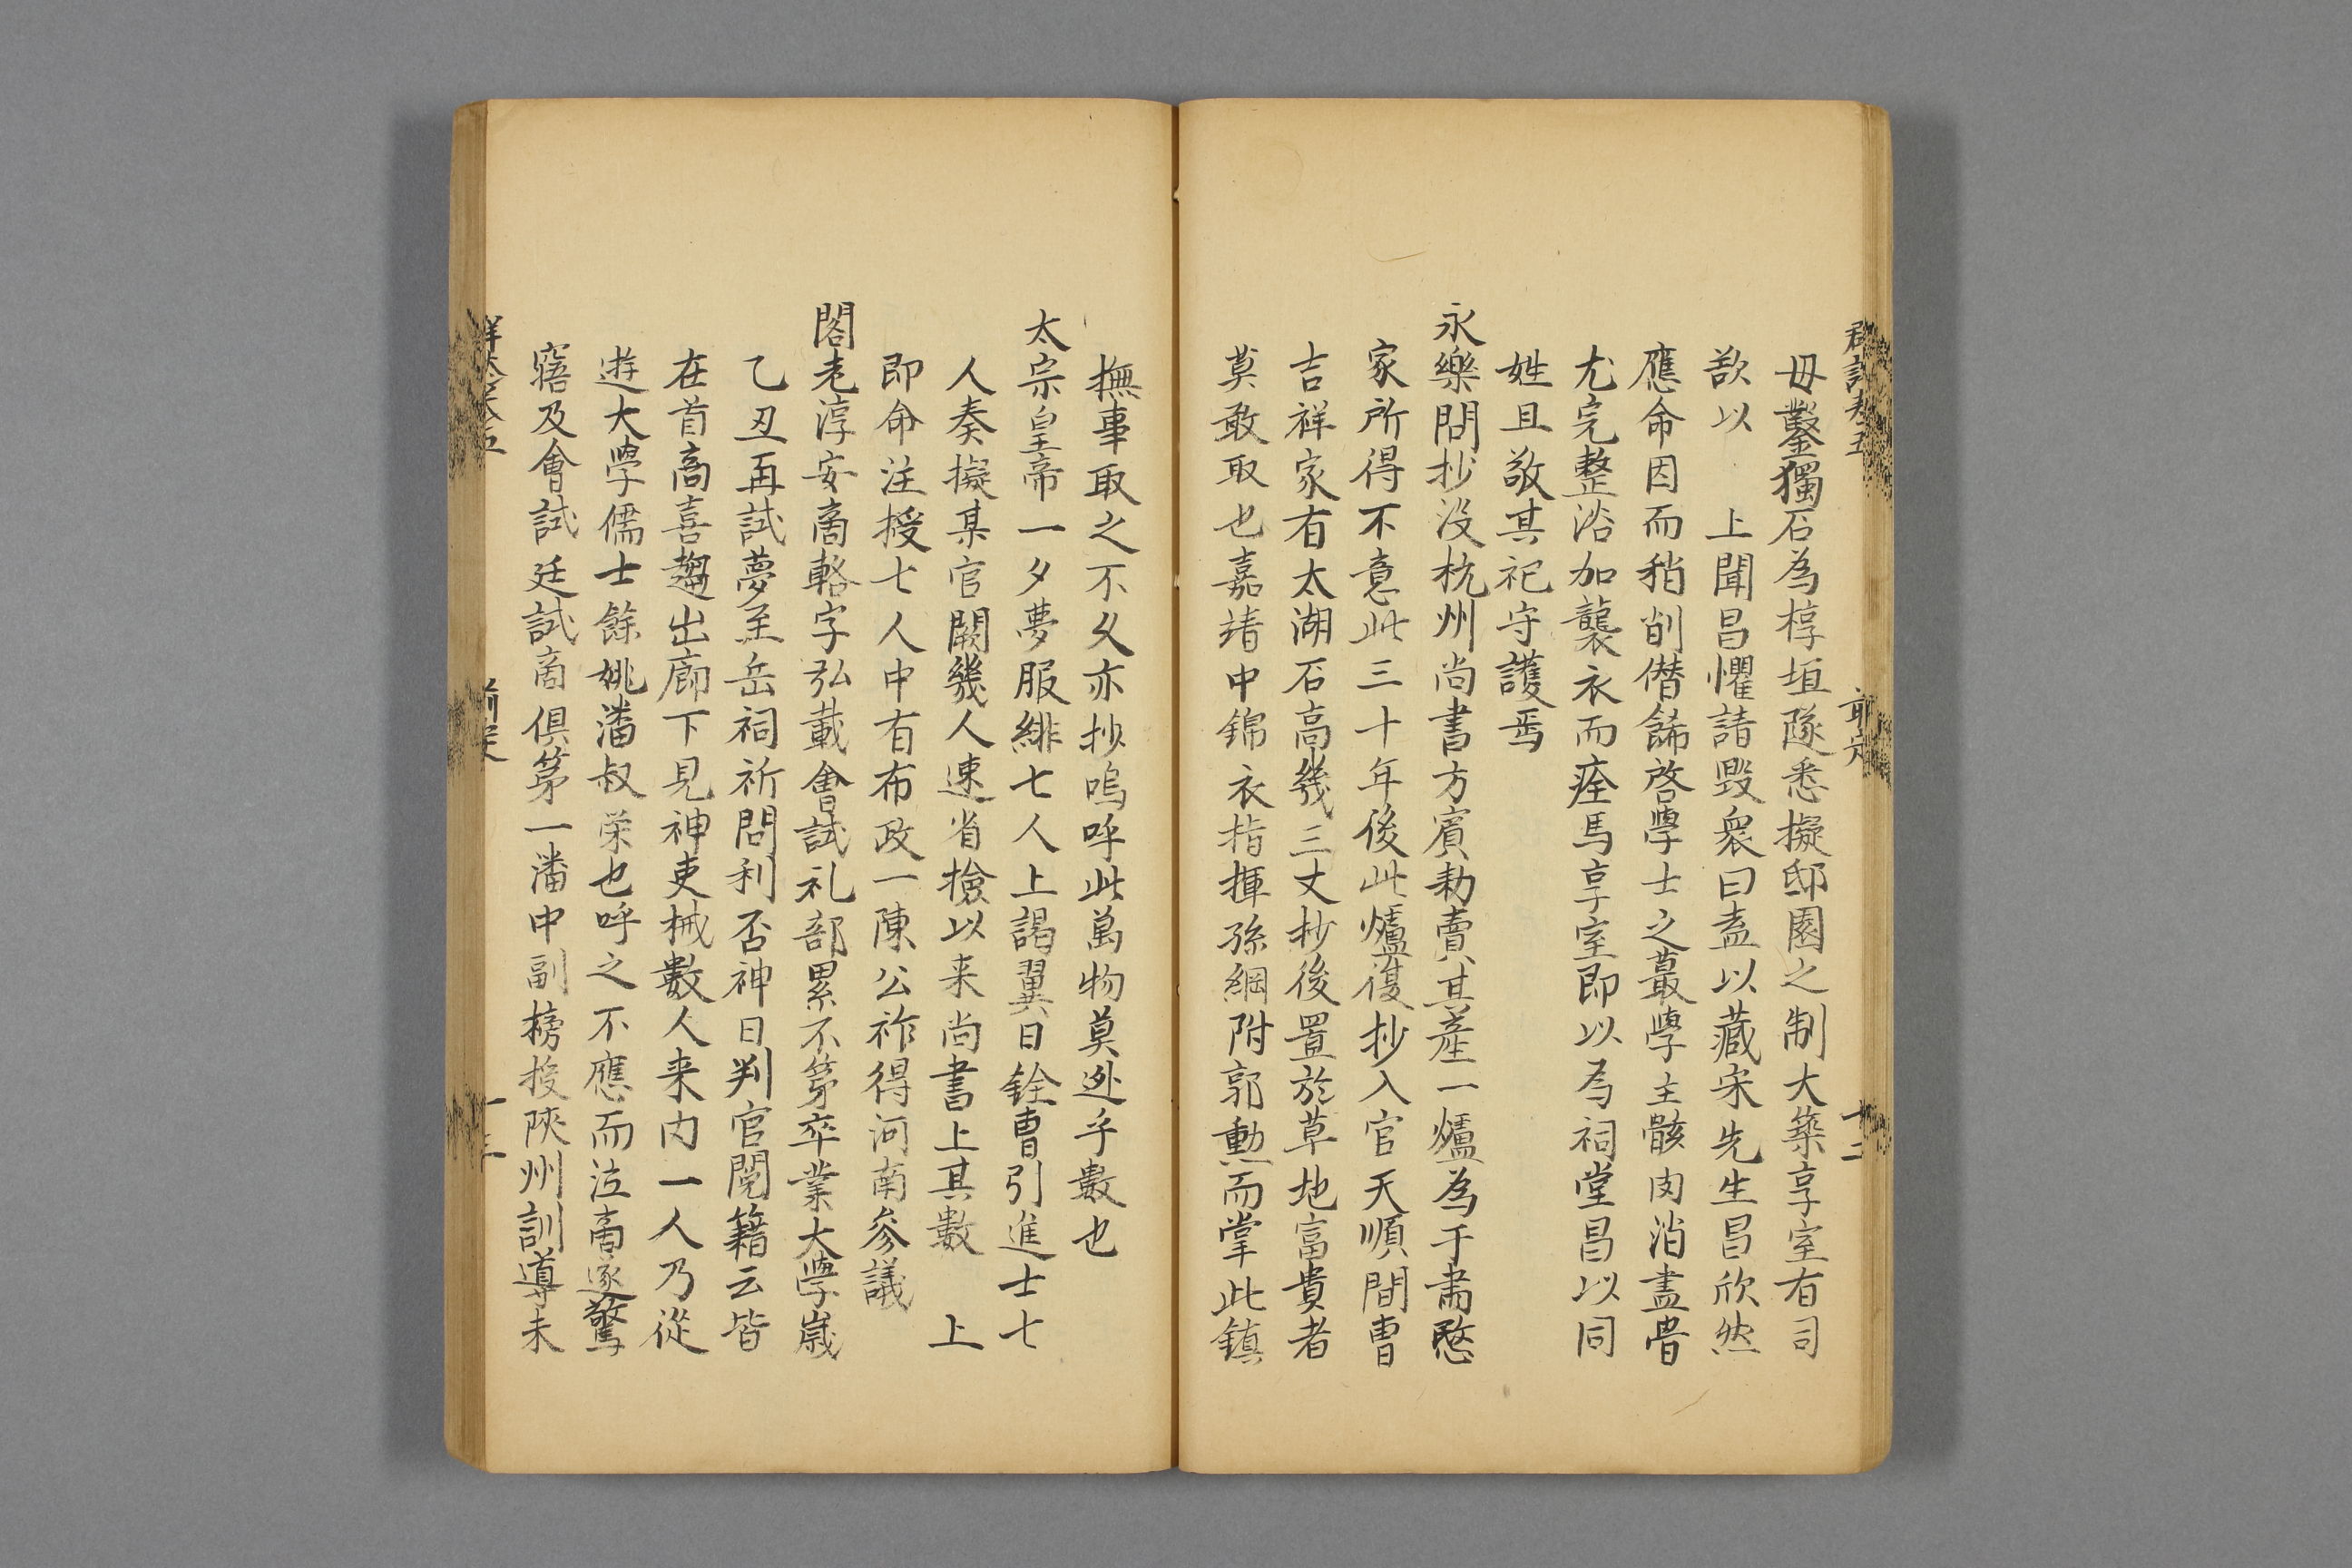 毋鑿獨石為椁垣隧悉擬邸園之制大築享室有司
欲以　上聞昌懼請毀衆曰盍以藏宋先生昌欣然
應命因而稍削僣餙啓學士之墓學士骸肉消盡骨
尤完整浴加襲衣而痊馬享室即以為祠堂昌以同
姓且敬其祀守護焉
永樂間抄没杭州尚書方賓勑賣其產一爐為于肅愍
家所得不意此三十年後此爐復抄入官天順間曹
吉祥家有太湖石高幾三丈抄後置於草地富貴者
莫敢取也嘉靖中錦衣指揮孫綱附郭勳而掌此鎮
撫事取之不久亦抄嗚呼此萬物莫逃乎數也
太宗皇帝一夕夢服緋七人上謁翼日銓曹引進士七
人奏擬某官闕幾人速省撿以来尚書上其數　上
即命注授七人中有布政一陳公祚得河南參議
閣老淳安商輅字弘載會試礼部累不第卒業大學歲
乙丑再試夢至岳祠祈問利否神曰判官閱籍云皆
在首商喜趨出廊下見神吏械數人来内一人乃從
遊大學儒士餘姚潘叔荣也呼之不應而泣商遂驚
寤及會試廷試商俱第一潘中副榜授陝州訓導未